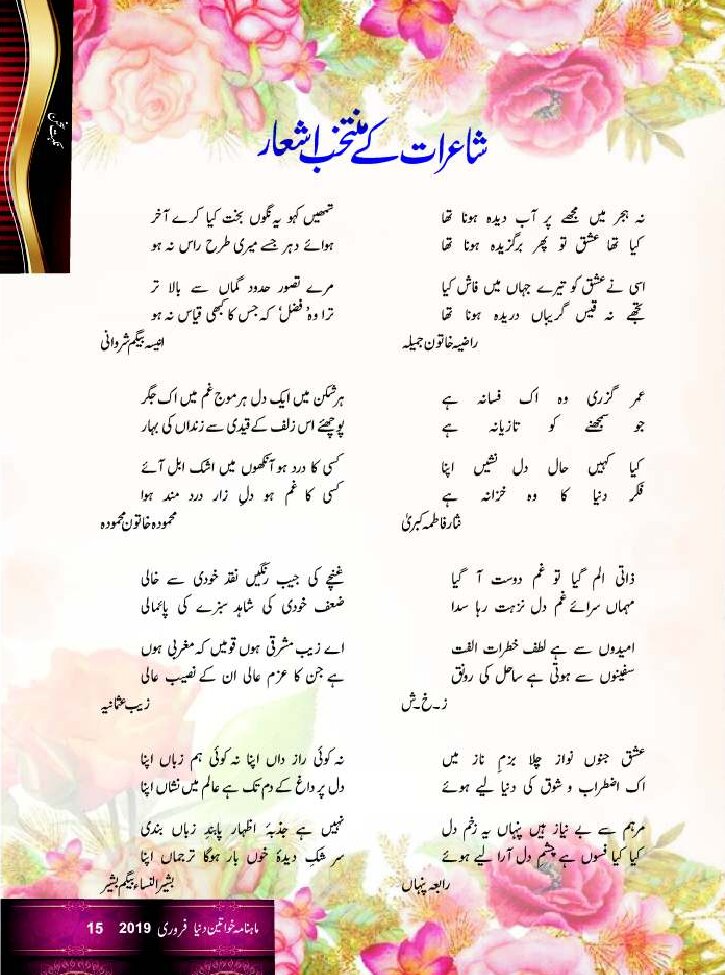 شاعرات کے منتخب اشعار
نہ ہجر میں مجھے پر آب دیدہ ہونا تھا
کیا تھا عشق تو پھر برگزیدہ ہونا تھا
اسی نے عشق کو تیرے جہاں میں فاش کیا
تجھے نہ قیس گریباں دریدہ ہونا تھا
راضیہ خاتون جمیلہ
عمر گزری وہ اک فسانہ ہے
جو سمجھنے کو تازیانہ ہے
کیا کہیں حال دل نشیں اپنا
فکر دنیا کا وہ خزانہ ہے
نثار فاطمہ کبریٰ
ذاتی الم گیا تو غم دوست آ گیا
مہماں سرائے غم دل نزہت رہا سدا
امیدوں سے ہے لطف خطرات الفت
سفینوں سے ہوتی ہے ساحل کی رونق
ز۔خ۔ش
عشق جنوں نواز چلا بزم ناز میں
اک اضطراب و شوق کی دنیا لیے ہوئے
مرہم سے بے نیاز ہیں پنہاں یہ زخم دل
کیا کیا فسوں ہے چشم دل آرا لیے ہوئے
رابعہ پنہاں
تمھیں کہو یہ نگوں بخت کیا کرے آخر
ہوائے دہر جسے میری طرح راس نہ ہو
مرے تصور حدود گماں سے بالا تر
ترا وہ 'فضل' کہ جس کا کبھی قیاس نہ ہو
انیسہ بیگم شردانی
ہر شکن میں ایک دل ہر موج غم میں اک جگر
پوچھئے اس زلف کے قیدی سے زنداں کی بہار
کسی کا درد ہو آنکھوں میں اشک ابل آئے
کسی کا غم ہو دلِ زار درد مند ہوا
محمودہ خاتون محمودہ
غنچے کی جیب رنگیں نقد خودی سے خالی
ضعف خودی کی شاہد سبزے کی پائمالی
اے زیب مشرقی ہوں قومیں کہ مغربی ہوں
ہے جن کا عزم عالی ان کے نصیب عالی
زیب عثمانیہ
نہ کوئی راز داں اپنا نہ کوئی ہم زباں اپنا
دل پر داغ کے دم تک ہے عالم میں نشاں اپنا
نہیں ہے جذبۂ اظہار پابندِ زباں بندی
سر شکِ دیدۂ خوں بار ہوگا ترجماں اپنا
بشیر النساء بیگم بشیر
ماہنامہ خواتین دنیا فروری 2019 15